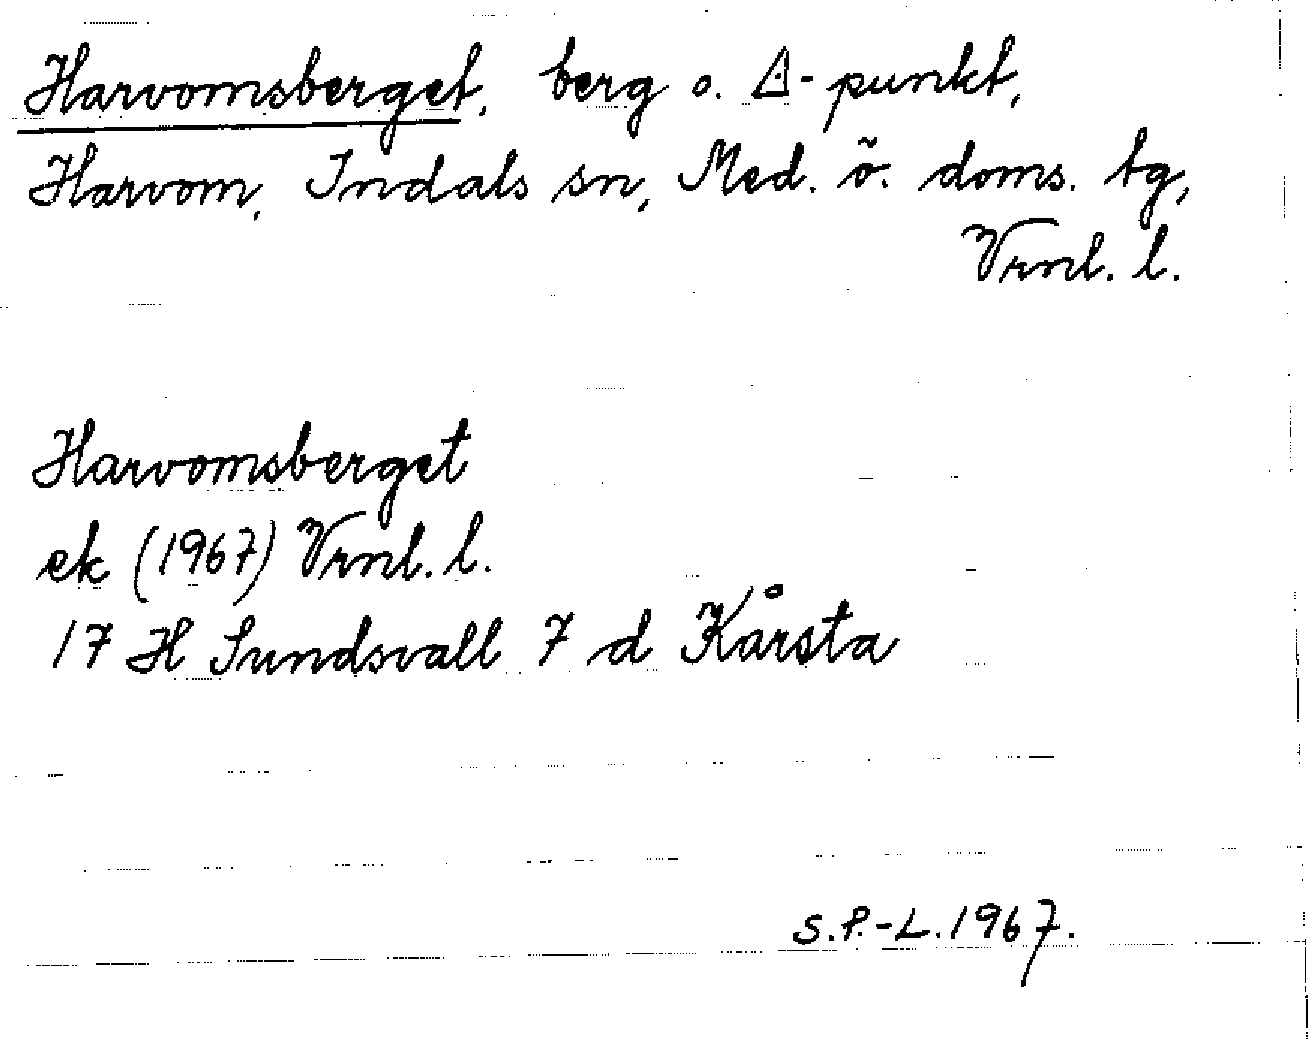 Harvomsberget, berg o. ∆-punkt,
Harvom, Indals sn, Med. ö. doms. tg,
Vrnl. l.
Harvomsberget
ek (1967) Vrnl. l.
17 H Sundsvall 7 d Kårsta
S.P.-L. 1967.